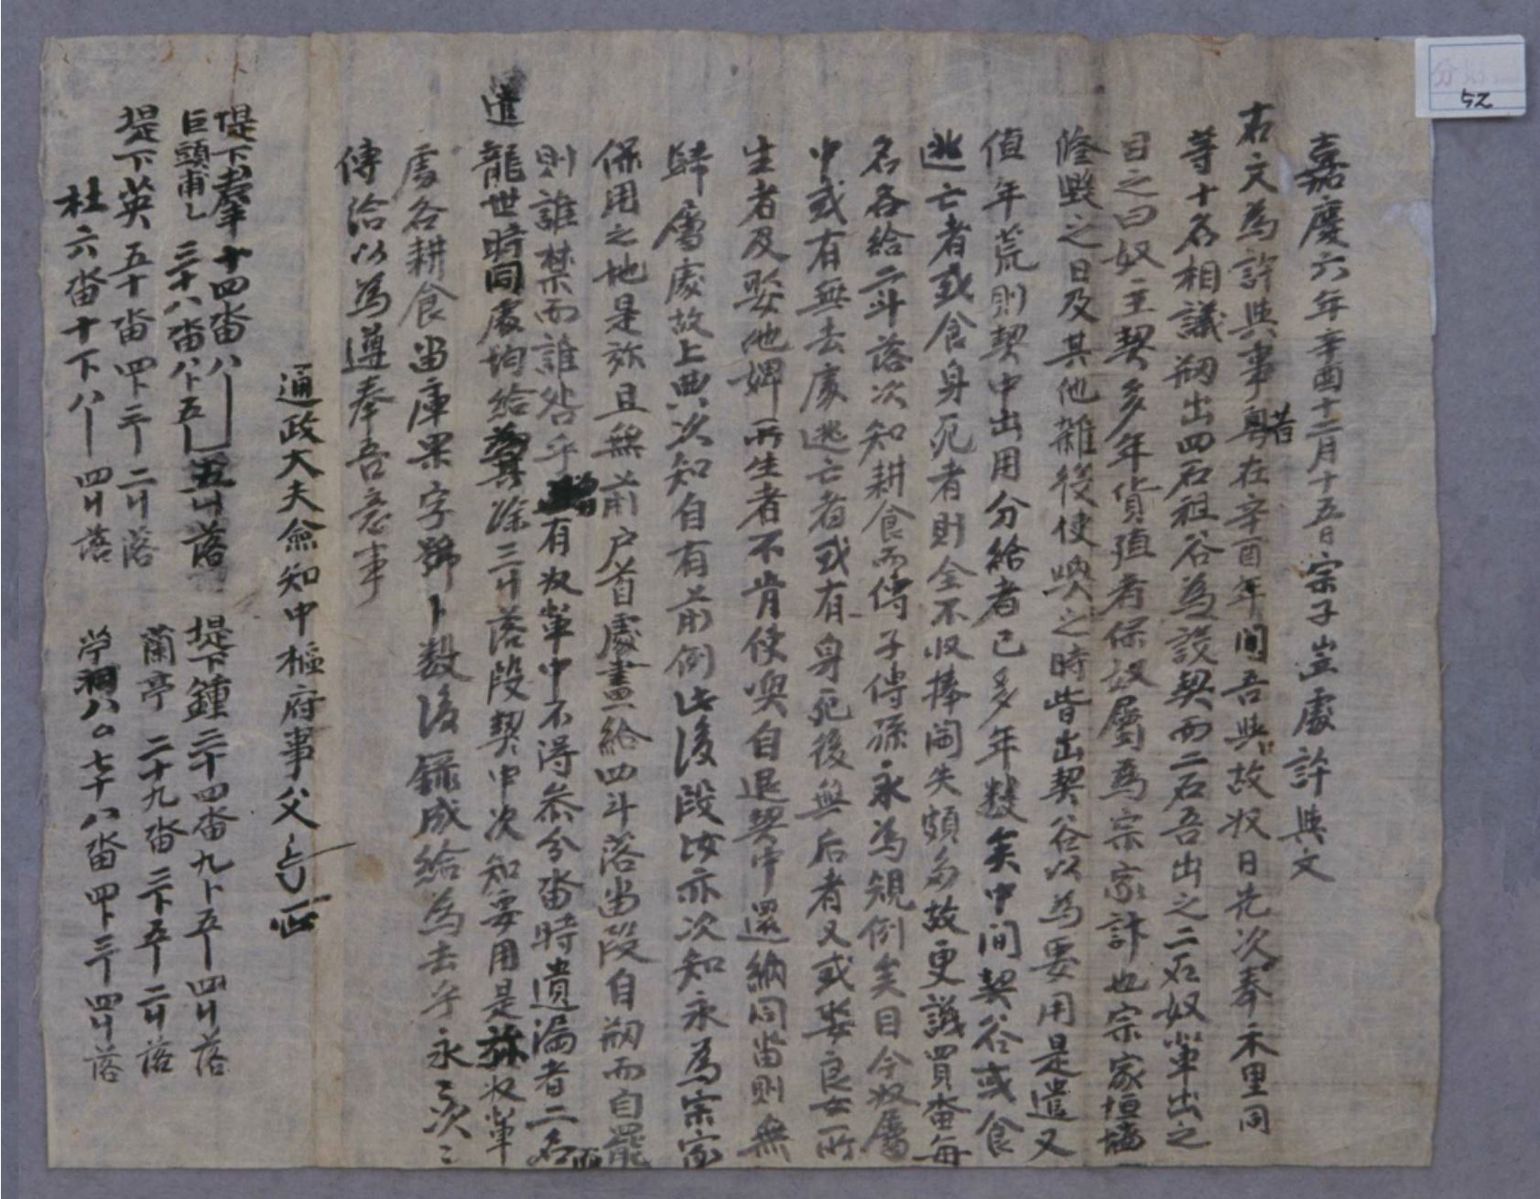 嘉慶六年辛酉十二月十五日宗子岦處許與文
右文爲許與事粤昔在辛酉年間吾與故奴日先次奉禾里同
等十名相議刱出四石租谷爲設契而二石吾出之二石奴軰出之
目之曰奴主契多年貨殖者保奴屬爲宗家計也宗家垣墻
隆毁之日及其他雜役使喚之時皆出契谷以爲要用是遣又
値年荒則契中出用分給者已多年數矣中間契谷或食
逃亡者或食身死者則全不收捧閪失頗多故更議買畓每
名各給二斗落次知耕食而傳子傳孫永爲規例矣目今奴屬
中或有無去處逃亡者或有身死後無后者又或娶良女所
生者及娶他婢所生者不肯使喚自退契中還納同畓則無
歸屬處故上典次知自有前例此後段汝亦次知永爲宗家
保用之地是旀且無前戶首處畫給四斗落畓段自刱而自罷
則誰禁而誰咎乎 有奴軰中不得叅分畓時遺漏者二名
遣龍世時同處均給 其除三斗落段契中次知要用是旀奴軰
處各耕食畓庫果字號卜數後錄成給爲去乎永永次次
傳洽以爲遵奉吾意事
通政大夫僉知中樞府事父
堤下羣十四畓八卜 五斗落 堤下鍾二十四畓九卜五卜四斗落
巨頭甫乙三十八畓八卜五卜
堤下英五十畓四卜三卜二斗落 蘭亭二十九畓三卜五卜二斗落
杜六畓十下八卜四斗落 八七十八畓四卜三卜四斗落
52